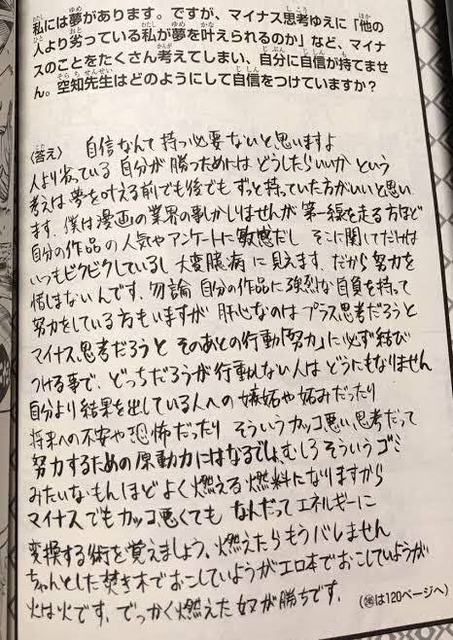 私には夢があります。ですが、マイナス思考ゆえに「他の
人より劣っている私が夢を叶えられるのか」など、マイナ
スのことをたくさん考えてしまい、自分に自信が持てませ
ん。空知先生はどのようにして自信をつけていますか？
〈答え〉 自信なんて持つ必要ないと思いますよ
人より劣っている自分が勝つためにはどうしたらいいかという
考えは夢を叶える前でも後でもずっと持っていた方がいいと思い
ます。僕は漫画の業界の事しかしりませんが第一線を走る方ほど
自分の作品の人気やアンケートに敏感だし そこに関してだけは
いつもビクビクしているし大変臆病に見えます。だから努力を
惜しまないんです。勿論 自分の作品に強烈な自負を持って
努力をしている方もいますが 肝心なのはプラス思考だろうと
マイナス思考だろうと そのあとの行動「努力」に必ず結び
つける事で、どっちだろうが行動しない人はどうにもなりません
自分より結果を出している人への嫉妬や妬みだったり
将来への不安や恐怖だったり そういうカッコ悪い思考だって
努力するための原動力にはなるでしょ むしろそういうゴミ
みたいなもんほどよく燃える燃料になりますから
マイナスでもカッコ悪くても なんだってエネルギーに
変換する術を覚えましょう、燃えたらもうバレません
ちゃんとした焚き木でおこしていようがエロ本でおこしていようが
火は火です。でっかく燃えた奴が勝ちです。
は120ページへ）